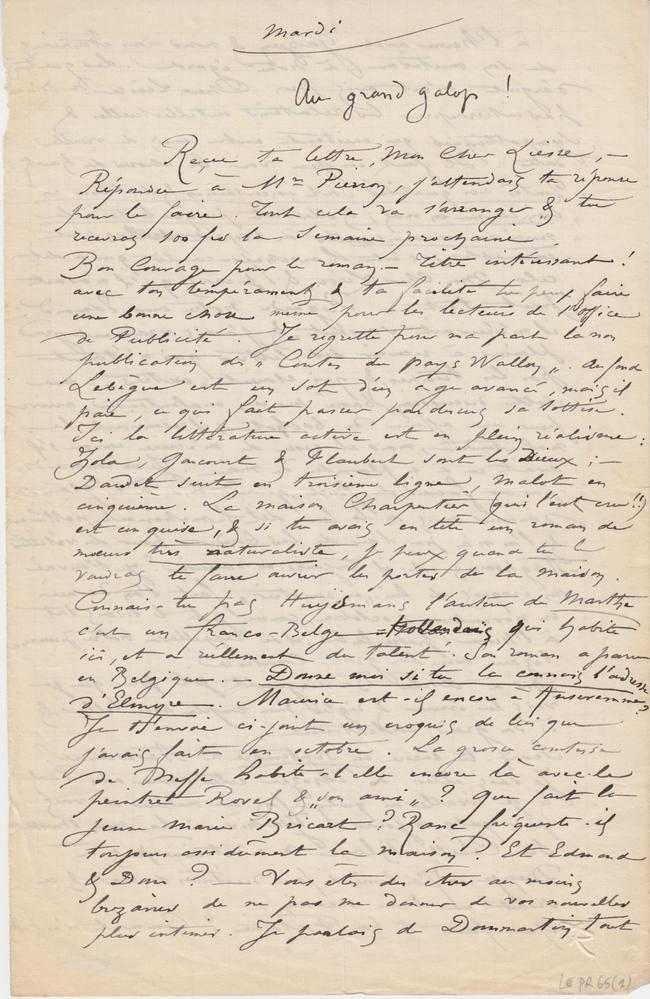 Mardi
Au grand galop !
Reçu ta lettre, Mon Cher Liesse, —
Répondre à Mr Pierron, j'attendais ta réponse
pour le faire. Tout cela va s'arranger & tu
recevras 100 frs la Semaine prochaine
Bon Courage pour le roman — Titre intéressant !
avec ton tempérament & ta facilité tu peux faire
une bonne chose même pour les lecteurs de l'office
de Publicité. Je regrette pour ma part la non
publication des "Contes du pays Wallon". Au fond
Lebègue est un sot d'un âge avancé, mais il
paie, ce qui fait passer par dessus sa sottise.
Ici la littérature active est en plein réalisme :
Zola, Goncourt & Flaubert sont les Dieux ; —
Daudet suit en troisième ligne, Malot en
cinquième. La maison Charpentier (qui l'eut cru !!)
est conquise, & si tu avais en tête un roman de
mœurs très naturaliste, je peux quand tu le
voudras te faire ouvrir les portes de la maison.
Connais-tu pas Huysmans l'auteur de Marthe
c'est un franco-Belge Hollandais qui habite
ici, et a réellement du talent. Son roman a paru
en Belgique. — Donne moi si tu la connais l'adresse
d'Elmyre. Maurice est-il encore à Anseremme ?
Je t'envoie ci-joint un croquis de lui que
j'avais fait en octobre. La grosse comtesse
de habite-t-elle encore là avec le
peintre Rovel & "son ami" ? Que fait la
jeune Marie Bricart ? Ranc fréquente-il
toujours assidûment la maison ? Et Edmond
& Dom ? — Vous êtes des êtres au moins
bizarres de ne pas me donner de vos nouvelles
plus intimes. Je parlais de Dommartin, tout
LE PR 65 (1)